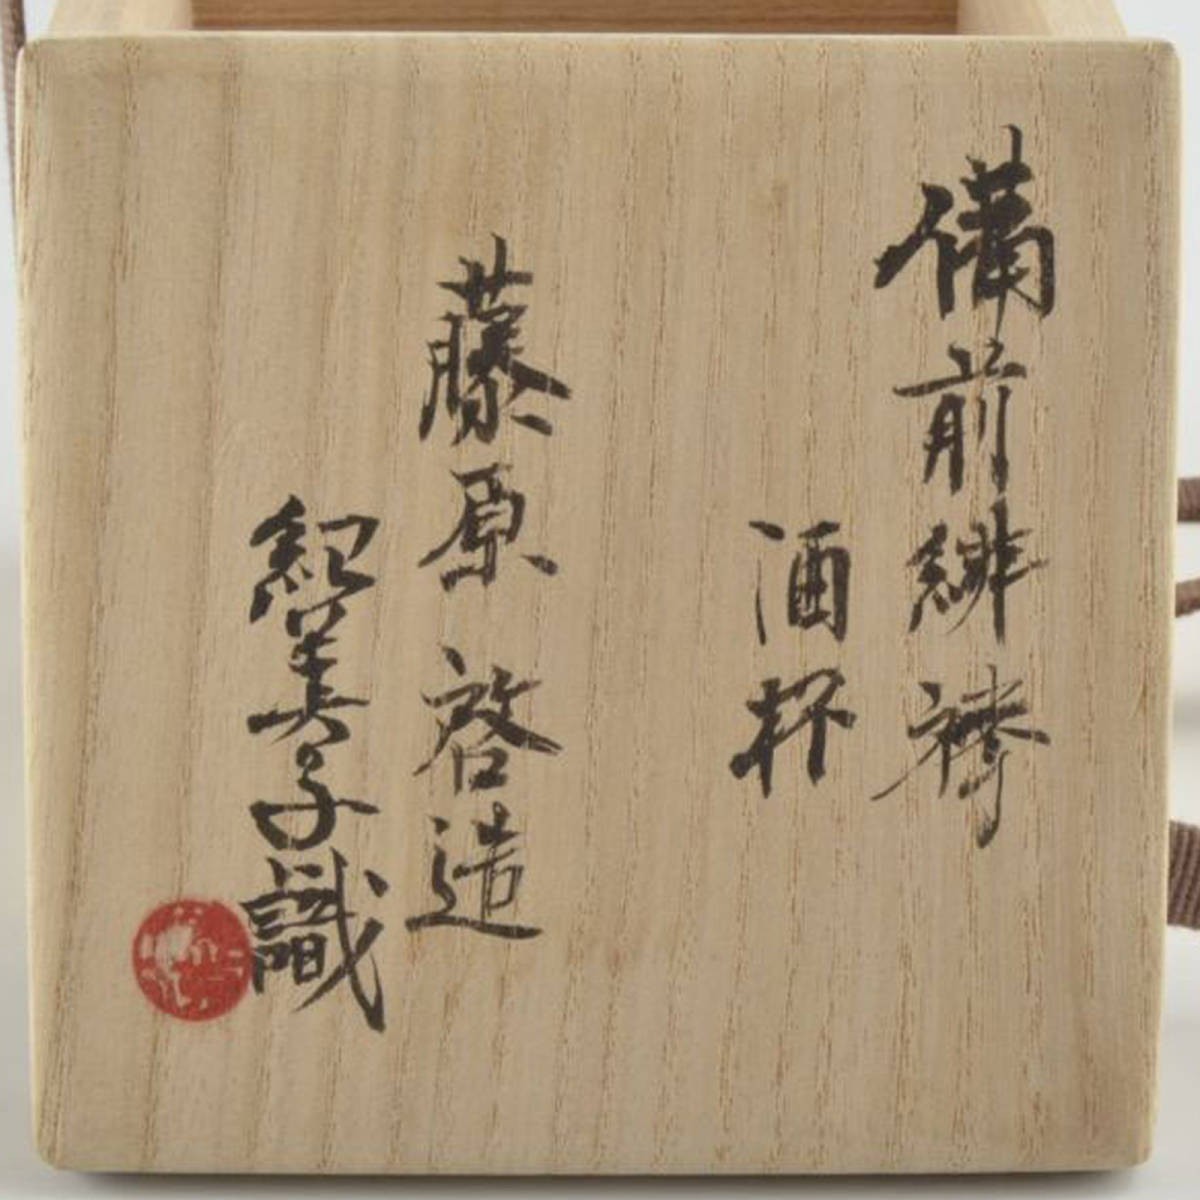 備前緋襷
酒杯
藤原啓造
紀美子識